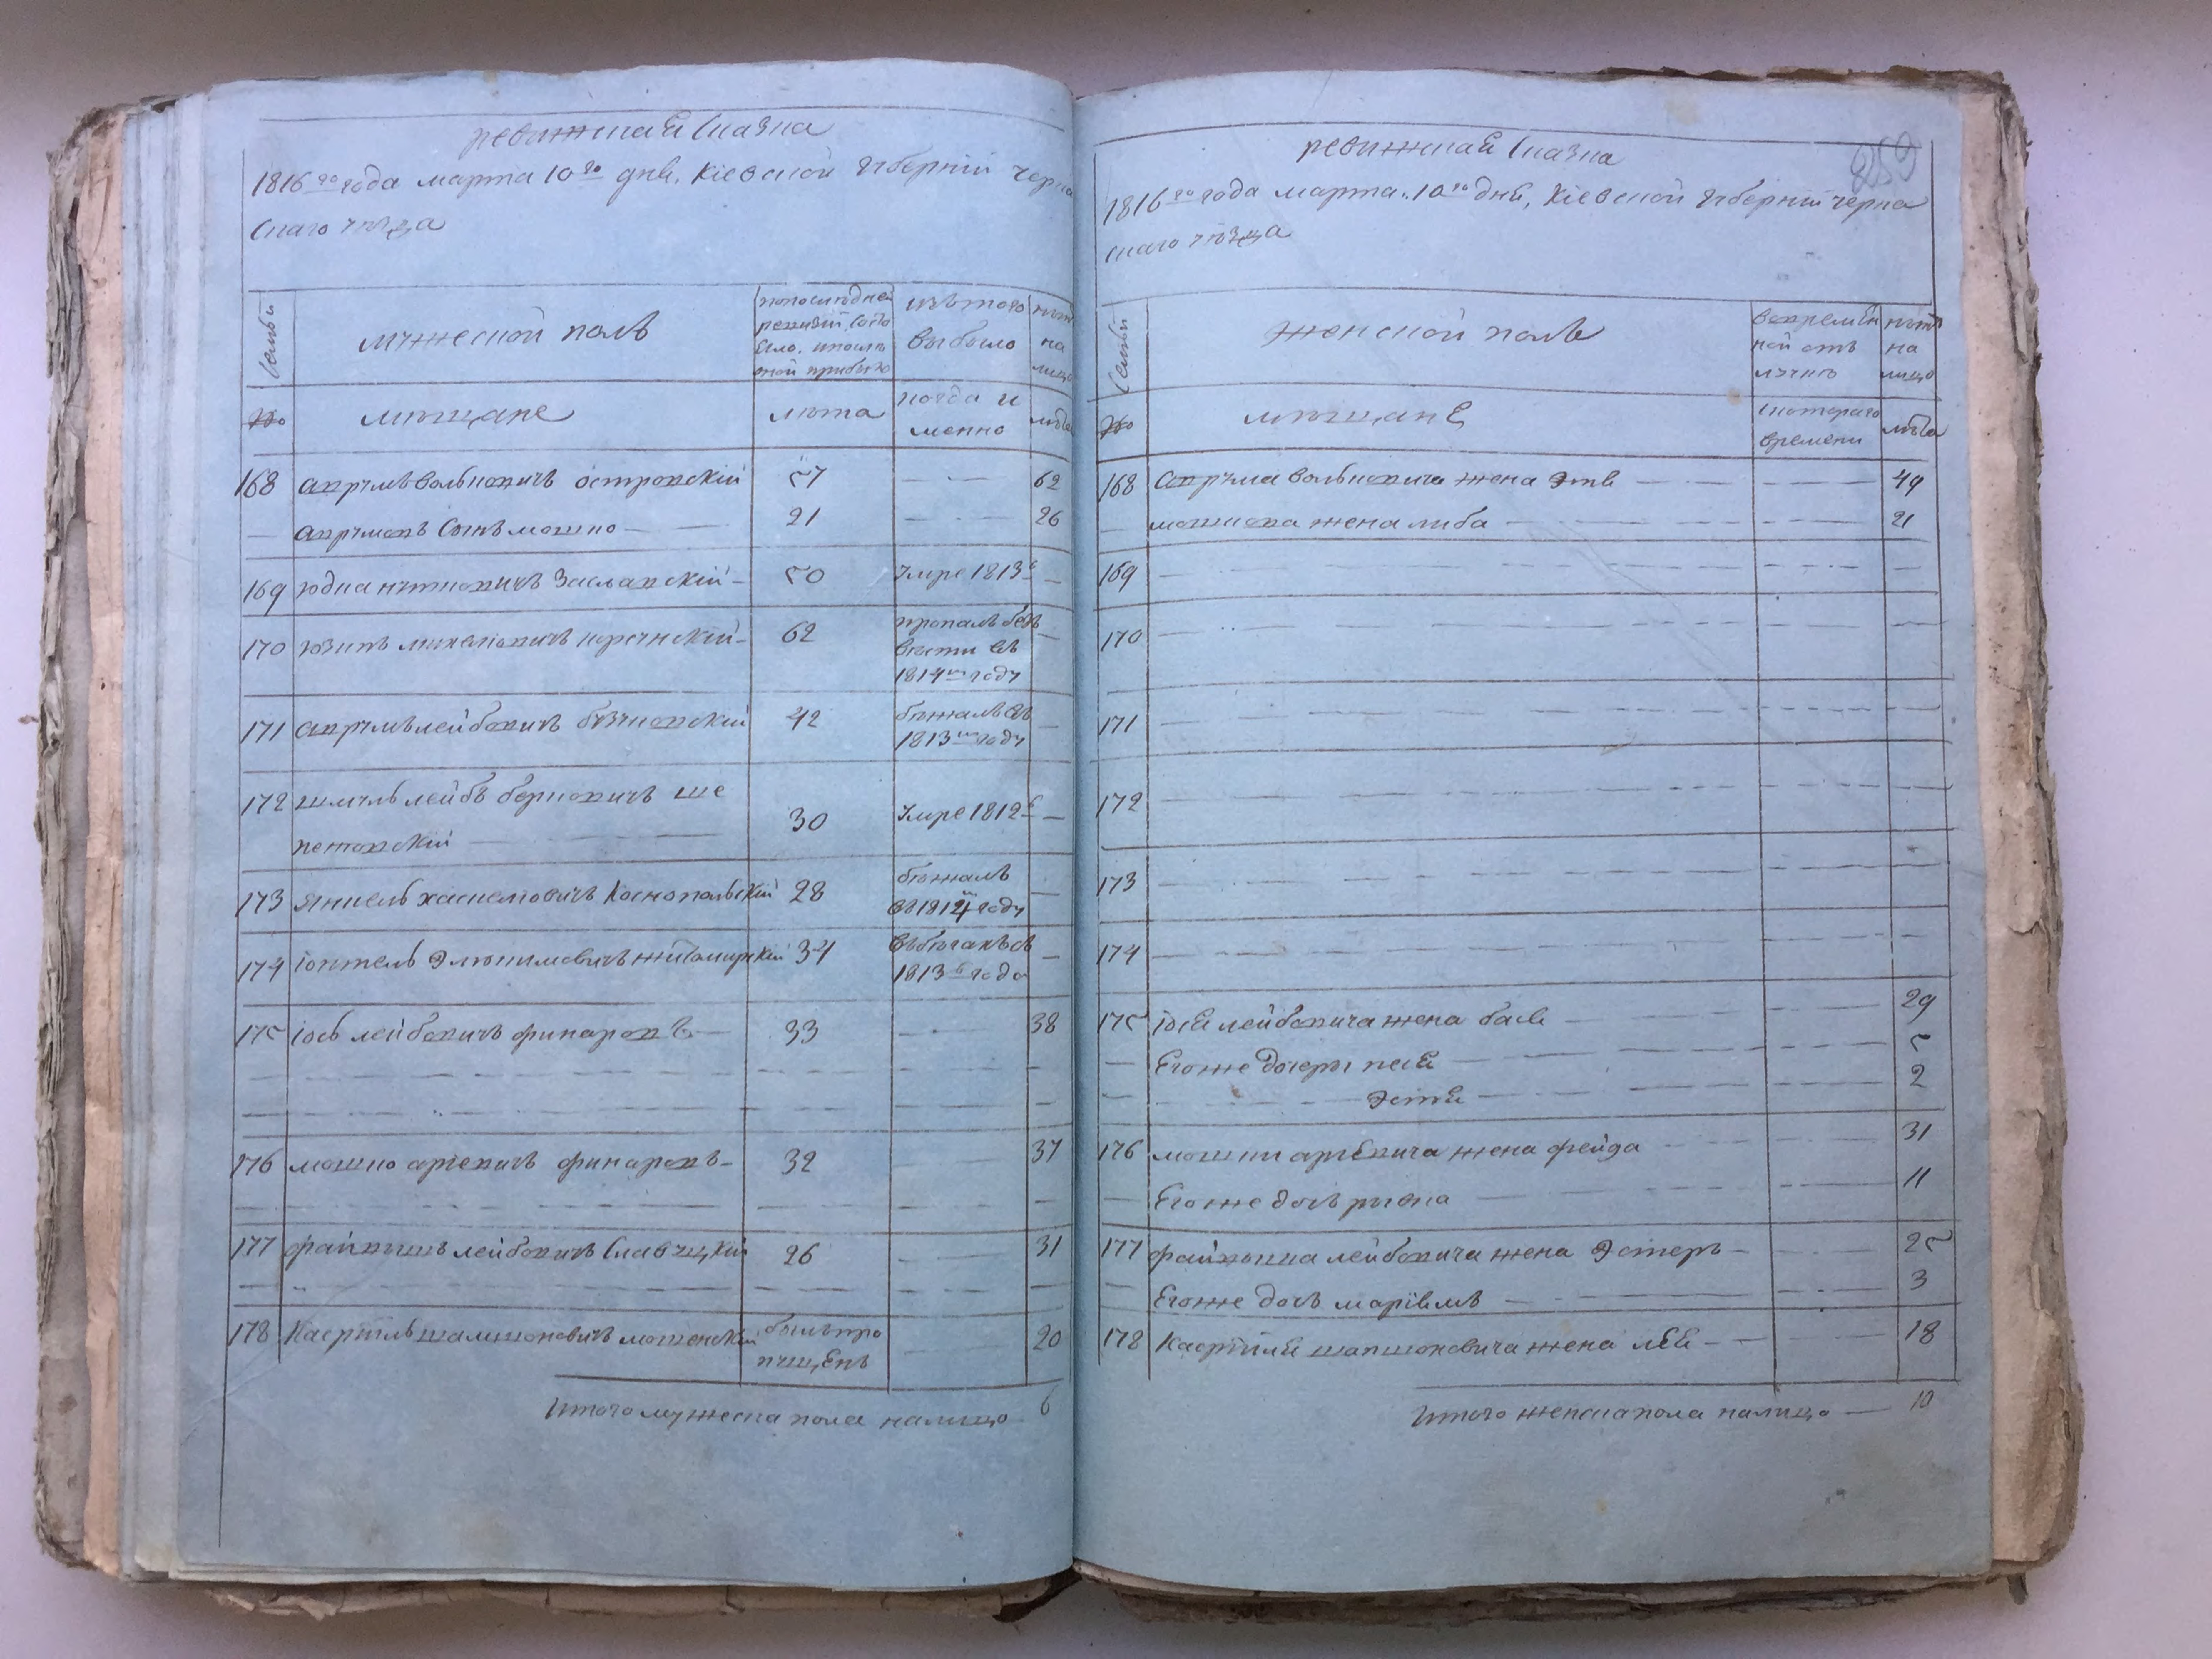 ревижская сказка
1816го года марта 10го дня, Кіевской губерніи черка
скаго уѣзда
Семьи
мужеской полъ
попоследней
ревизіи состо
яло. ипослѣ
оной прибыло
изътого
выбыло
нынѣ
на
лицо
№
мѣщане
лѣта
когда и
менно
лѣта
168 аврумъ волковичъ островскій 57 62
аврумовъ сынъ мошко 21 26
169 юдка нутковичъ Заславскій 50 Умре 1813г
170 юзипъ михелiовичъ коречскій 62 пропалъ безъ
вѣсти въ
1814м году
171 аврумъ лейбовичъ 42 бѣжалъ въ
1813м году
172 шмуль лейбъ берковичъ ше
петовскій 30 Умре 1812г
173 янкель хаскелiовичъ Коснопольскій 28 бѣжалъ
въ 1814м году
174 іоктель житомирскій 34 въбѣгахъ съ
1813г года
175 іось лейбовичъ финаровъ 33 38
176 мошко аріевичъ финаровъ 32 37
177 файвишъ лейбовичъ Славуцкій 26 31
178 Касріиль шапшоновичъ мошенскій былъ про
пущенъ 20
Итого мужеска пола налицо 6
859
ревижская сказка
1816го года марта 10го дня, Кіевской губерніи черка
скаго уѣзда
Семьи
женской полъ
вовремен
ной отъ
лучкѣ
нынѣ
на
лицо
№
мѣщане
скотораго
времени
лѣта
168 аврума волковича жена Этя 49
мошкова жена либа 21
169
170
171
172
173
174
175 іося лейбовича жена бася 29
Егоже дочери песя 5
Эстя 2
176 мошки аріевича жена фейда 11 31
Егоже дочь рывка
177 файвиша лейбовича жена Эстеръ 25
Егоже дочь маріямъ 3
178 Касріиля шапшоновича жена лея 18
Итого женска пола налицо 10